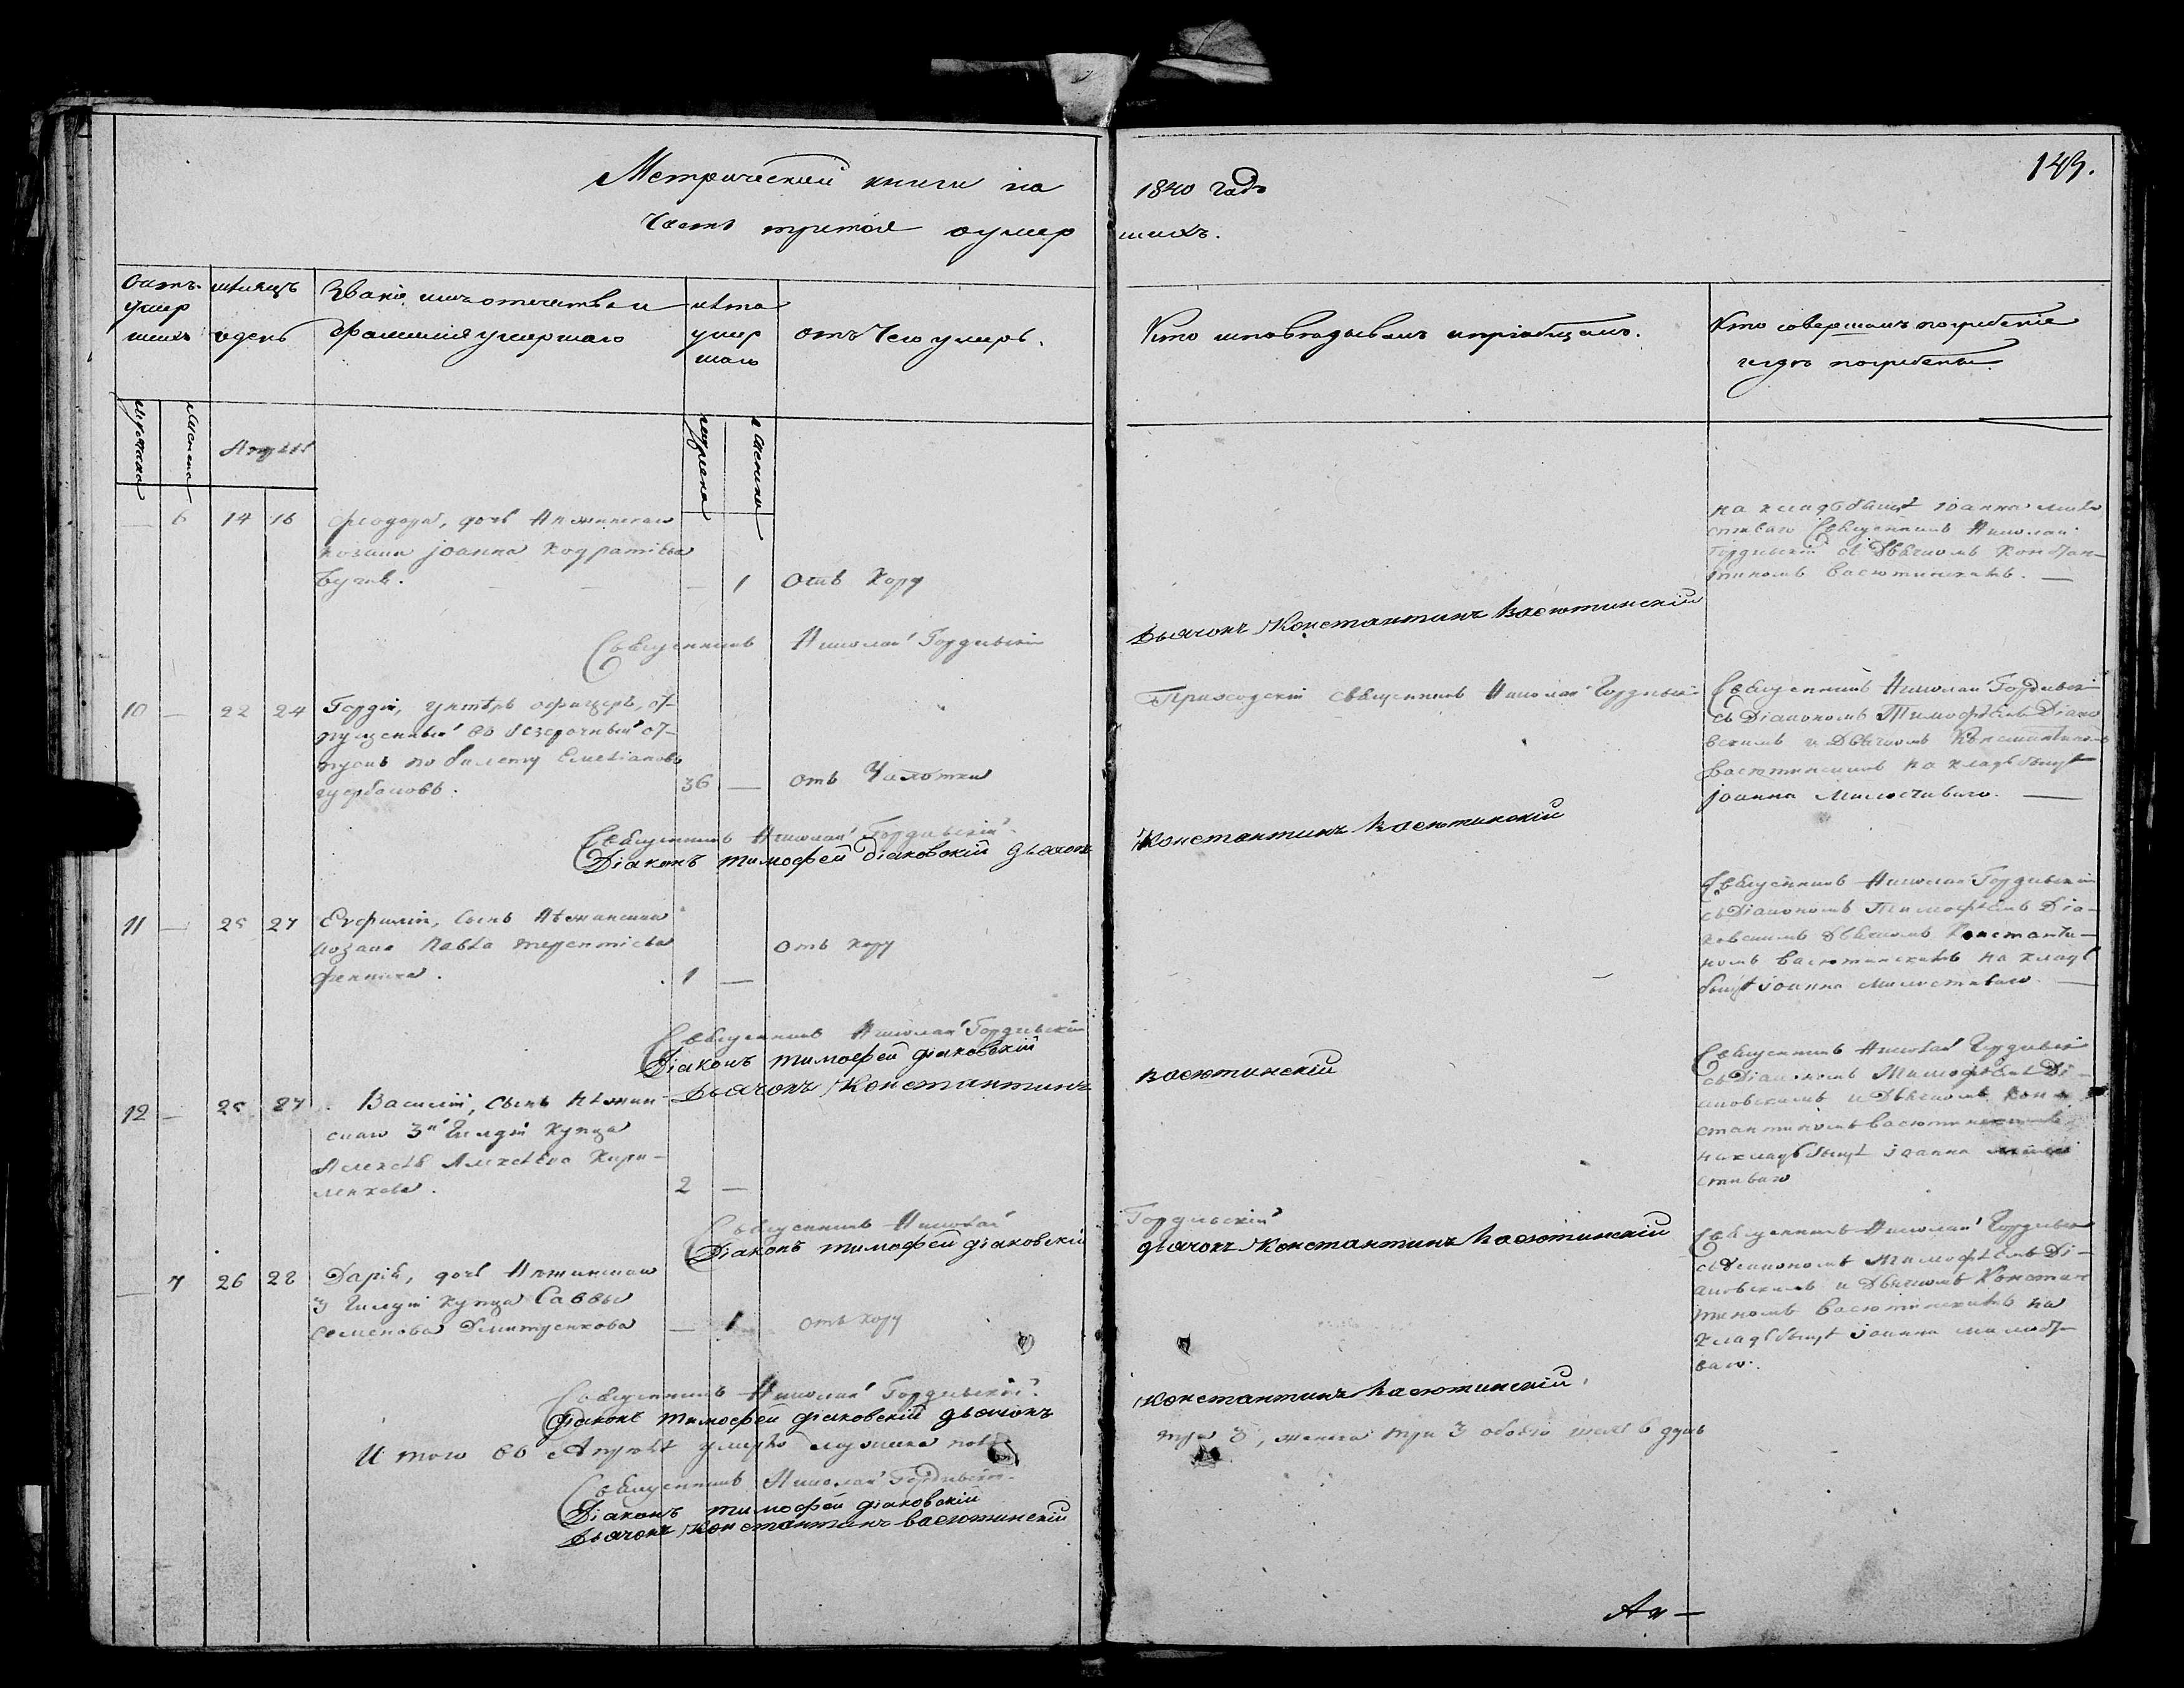 Метрической книги на 1840 годъ
143.
Часть третья о умер шихъ.
Счетъ умер шихъ
мѣсяцъ и день
Званіе, имя отечество и
фамилія умершаго
лѣта умер шаго
отъ чего умеръ.
Кто исповѣдывалъ и пріобщалъ.
Кто совершалъ погребеніе
и гдѣ погребены.
мужеска
женска
Апрѣль
мужеска
женска
— 6 14 16 Феодора, дочь Нѣжинскаго
козака Іоанна Кодратіева
— 1 отъ Кору
на кладбищѣ Іоанна мило
стиваго Священникъ Николай
Гордіевскій съ Дьячкомъ Констан-
тиномъ Васютинскимъ. —
Священникъ Николай Гордіевскій
Дьячокъ Константинъ Васютинскій
10 — 22 24 Гордій, унтеръ офицеръ, от-
пущенный въ безсрочный от-
пускъ по билету Емеліановъ
36 — отъ Чахотки
Приходскій священникъ Николай Гордіевскій
Священникъ Николай Гордіевскій
съ Діакономъ Тимофѣемъ Діако
вскимъ и Дьячкомъ Константиномъ
Васютинскимъ на кладбищѣ
Іоанна Милостиваго. —
Священникъ Николай Гордіевскій.
Діаконъ Тимофей Діаковскій Дьячокъ
Константинъ Васютинскій
11 — 25 27 Евфимій, сынъ Нѣжинскаго
козака Павла Терентіева
1 — отъ кору
Священникъ Николай Гордіевскій
съ Діакономъ Тимофѣемъ Діа-
ковскимъ Дьячкомъ Константи-
номъ Васютинскимъ на клад
бищѣ Іоанна Милостиваго —
Священникъ Николай Гордіевскій
Діаконъ Тимофей Діаковскій
Дьячокъ Константинъ Васютинскій
12 — 25 27 Василій, сынъ Нѣжин-
скаго 3й Гилдіи Купца
Алексѣя Алексѣева
2 —
Священникъ Николай Гордіевскій
съ Діакономъ Тимофѣемъ Ді-
аковскимъ и Дьячкомъ Кон
стантиномъ Васютинскимъ
на кладбищѣ Іоанна мило
стиваго
Священникъ Николай Гордіевскій
Діаконъ Тимофей Діаковскій
Дьячокъ Константинъ Васютинскій
— 7 26 28 Дарія, дочь Нѣжинскаго
3 Гилдіи Купца Саввы
Семенова Дмитренкова
— 1 отъ кору
Священникъ Николай Гордіевскій
съ Діакономъ Тимофѣемъ Ді-
аковскимъ и Дьячкомъ Констан
тиномъ Васютинскимъ на
кладбищѣ Іоанна милости
ваго.
Священникъ Николай Гордіевскій.
Діаконъ Тимофей Діаковскій Дьячокъ
Константинъ Васютинскій.
Итого въ Апрѣлѣ умерло мужеска пола
три 3, женска три 3 обоего 6 душъ
Священникъ Николай Гордіевскій.
Діаконъ Тимофей Діаковскій
Дьячокъ Константинъ Васютинскій